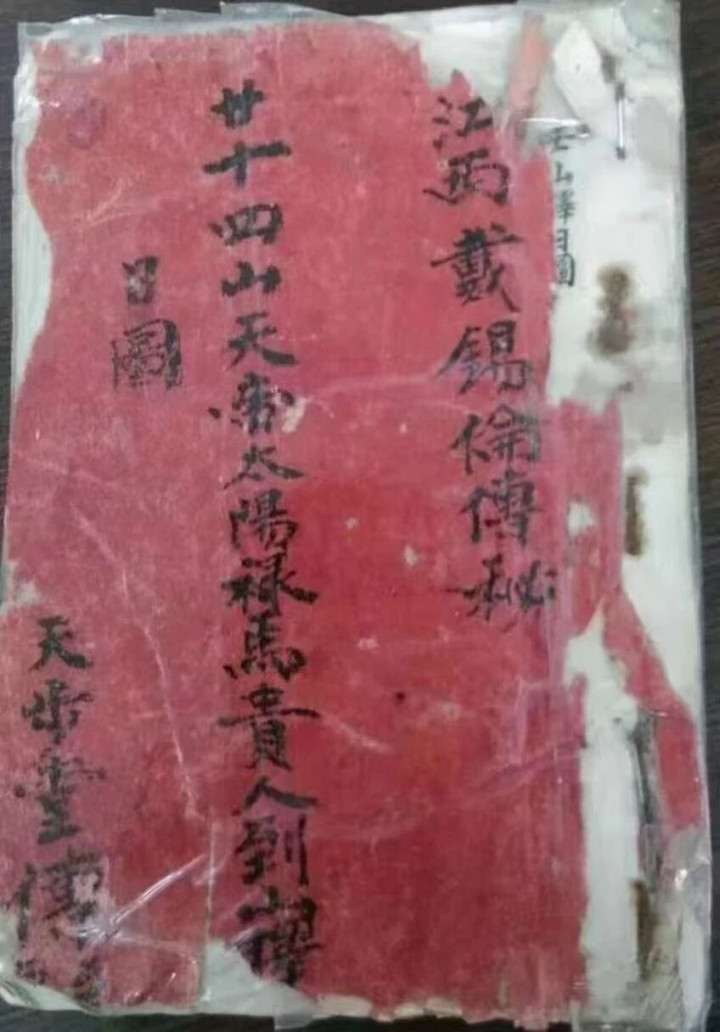 山擇日圖
江西戴錫倫傳秘
廿十四山天太陽禄馬貴人到山擇
日圖
天堂傳